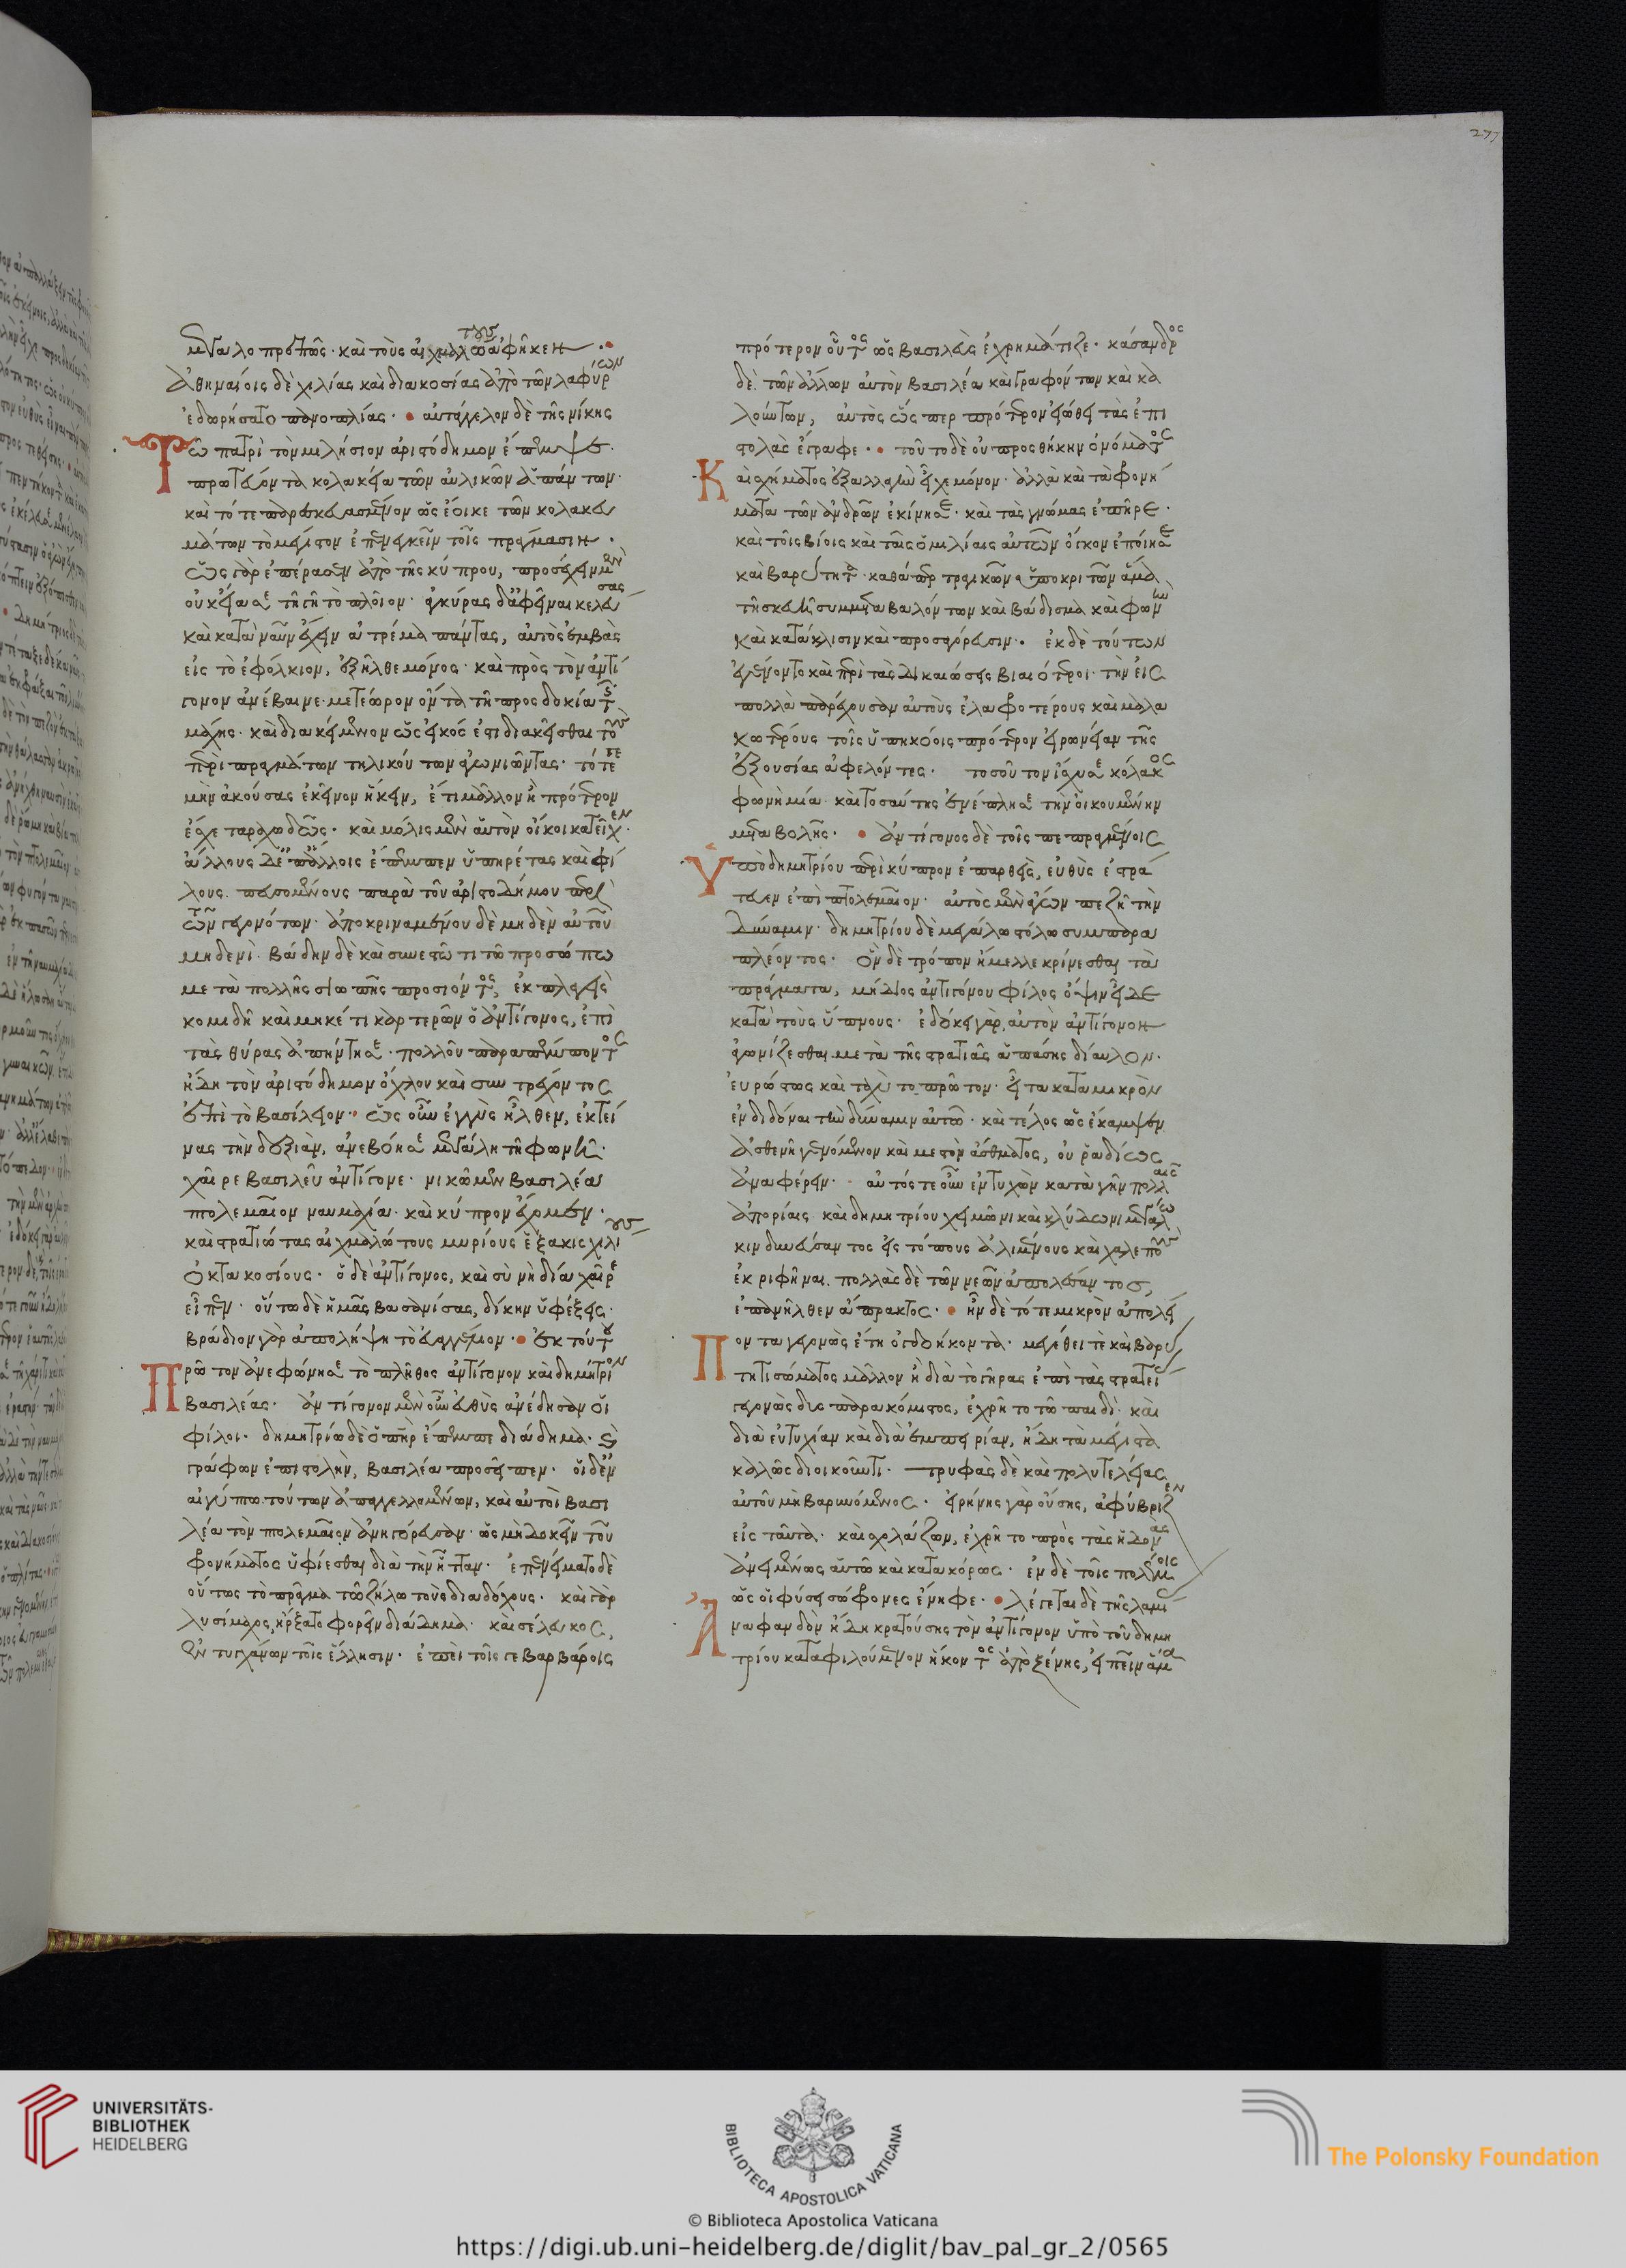 μεγαλοπρεπῶς· καὶ τοὺς αἰχμαλώτους ἀφῆκεν·
ἀθηναίοις δὲ χιλίας καὶ διακοσίας ἀπὸ τῶν λαφύρων
ἐδωρήσατο πανοπλίας· αὐτάγγελον δὲ τῆς νίκης
Τῶ πατρὶ τὸν μιλήσιον ἀριστόδημον ἔπεμψε·
πρωτεύοντα κολακεία τῶν αὐλικῶν ἁπάντων·
καὶ τότε παρεσκευασμένον ὡς ἔοικε τῶν κολακευ
μάτων τὸ μέγιστον ἐπενεγκεῖν τοῖς πράγμασιν·
ὡς γὰρ ἐπέρασεν ἀπὸ τῆς κύπρου, προσέχειν μὲν
οὐκ εἴασε τῆ γῆ τὸ πλοῖον· ἀγκύρας δὲ ἀφεῖναι κελεύσας
καὶ κατὰ ναῦν ἔχειν ἀτρέμα πάντας, αὐτὸς ἐμβὰς
εἰς τὸ ἐφόλκιον, ἐξῆλθε μόνος· καὶ πρὸς τὸν ἀντί
γονον ἀνέβαινε· μετέωρον ὄντα τῆ προσδοκία τῆς
μάχης· καὶ διακείμενον ὡς εἰκός ἐστι διακεῖσθαι τοὺς
περὶ πραγμάτων τηλικούτων ἀγωνιῶντας· τότε
μὴν ἀκούσας ἐκεῖνον ἥκειν, ἔτι μᾶλλον ἢ πρότερον
ἔσχε ταραχωδῶς· καὶ μόλις μὲν αὑτὸν οἴκοι κατεῖχεν·
ἄλλους δὲ ἐπ' ἄλλοις ἔπεμπεν ὑπηρέτας καὶ φί
λους· πευσομένους παρὰ τοῦ ἀριστοδήμου περὶ
τῶν γεγονότων· ἀποκριναμένου δὲ μηδὲν αὐτοῦ
μηδενὶ· βάδην δὲ καὶ συνεστῶτι τῶ προσώπω
μετὰ πολλῆς σιωπῆς προσιόντος, ἐκπλαγεὶς
κομιδῆ καὶ μηκέτι καρτερῶν ὁ ἀντίγονος, ἐπὶ
τὰς θύρας ἀπήντησε· πολλοῦ παραπέμποντος
ἤδη τὸν ἀριστόδημον ὄχλου καὶ συντρέχοντος
ἐπὶ τὸ βασίλειον· ὡς οὖν ἐγγὺς ἦλθεν, ἐκτεί
νας τὴν δεξιὰν, ἀνεβόησε μεγάλη τῆ φωνῆ·
χαῖρε βασιλεῦ ἀντίγονε· νικῶμεν βασιλέα
πτολεμαῖον ναυμαχία· καὶ κύπρον ἔχομεν·
καὶ στρατιώτας αἰχμαλώτους μυρίους ἑξακισχιλίους
ὀκτακοσίους· ὁ δὲ ἀντίγονος, καὶ σὺ νὴ δία χαῖρε
εἶπεν· οὕτω δὲ ἡμᾶς βασανίσας, δίκην ὑφέξεις·
βράδιον γὰρ ἀπολήψη τὸ εὐαγγέλιον· ἐκ τούτου
Πρῶτον ἀνεφώνησε τὸ πλῆθος ἀντίγονον καὶ δημήτριον
βασιλέας· ἀντίγονον μὲν οὖν εὐθὺς ἀνέδησαν οἱ
φίλοι· δημητρίω δὲ ὁ πατὴρ ἔπεμπε διάδημα· καὶ
γράφων ἐπιστολὴν, βασιλέα προσεῖπεν· οἱ δ' ἐν
αἰγύπτω τούτων ἀπαγγελλομένων, καὶ αὐτοὶ βασι
λέα τὸν πτολεμαῖον ἀνηγόρευσαν· ὡς μὴ δοκεῖν τοῦ
φρονήματος ὑφίεσθαι διὰ τὴν ἧτταν· ἐπενείματο δὲ
οὕτως τὸ πρᾶγμα τῶ ζήλω τοὺς διαδόχους· καὶ γὰρ
λυσίμαχος, ἤρξατο φορεῖν διάδημα· καὶ σέλευκος,
ἐντυγχάνων τοῖς ἕλλησιν· ἐπεὶ τοῖς γε βαρβάροις
πρότερον οὗτος ὡς βασιλεὺς ἐχρημάτιζε· κάσανδρος
δὲ τῶν ἄλλων αὐτὸν βασιλέα καὶ γραφόντων καὶ κα
λούντων, αὐτὸς ὥσπερ πρότερον εἰώθει τὰς ἐπι
στολὰς ἔγραφε· τοῦτο δὲ οὐ προσθήκην ὀνόματος
Καὶ σχήματος ἐξαλλαγὴν εἶχε μόνον· ἀλλὰ καὶ τὰ φρονή
ματα τῶν ἀνδρῶν ἐκίνησε· καὶ τὰς γνώμας ἐπῆρε·
καὶ τοῖς βίοις καὶ ταῖς ὁμιλίαις αὐτῶν ὄγκον ἐποίησε
καὶ βαρύτητα· καθάπερ τραγικῶν ὑποκριτῶν ἅμα
τῆ σκευῆ συμμεταβαλόντων καὶ βάδισμα καὶ φωνὴν
καὶ κατάκλισιν καὶ προσαγόρευσιν· ἐκ δὲ τούτων
ἐγένοντο καὶ περὶ τὰς δικαιώσεις βιαιότεροι· τὴν εἰς
πολλὰ παρέχουσαν αὐτοὺς ἐλαφροτέρους καὶ μαλα
κωτέρους τοῖς ὑπηκόοις πρότερον εἰρωνείαν τῆς
ἐξουσίας ἀφελόντες· τοσοῦτον ἴσχυσε κόλακος
φωνὴ μία· καὶ τοσαύτης ἐνέπλησε τὴν οἰκουμένην
μεταβολῆς· ἀντίγονος δὲ τοῖς πεπραγμένοις
Ὑπὸ δημητρίου περὶ κύπρον ἐπαρθεὶς, εὐθὺς ἐστρά
τευεν ἐπὶ πτολεμαῖον· αὐτὸς μὲν ἄγων πεζῆ τὴν
δύναμιν· δημητρίου δὲ μεγάλω στόλω συμπαρα
πλέοντος· ὃν δὲ τρόπον ἤμελλε κρίνεσθαι τὰ
πράγματα, μήδιος ἀντιγόνου φίλος ὄψιν εἶδε
κατὰ τοὺς ὕπνους· ἐδόκει γὰρ αὐτὸν ἀντίγονον
ἀγωνίζεσθαι μετὰ τῆς στρατιᾶς ἁπάσης δίαυλον·
εὐρώστως καὶ ταχὺ τοπρῶτον· εἶτα κατὰ μικρὸν
ἐνδιδόναι τὴν δύναμιν αὐτῶ· καὶ τέλος ὡς ἔκαμψεν
ἀσθενῆ γενόμενον καὶ μεστὸν ἄσθματος, οὐ ῥαδίως
ἀναφέρειν· αὐτός τε οὖν ἐντυχὼν κατὰ γῆν πολλαῖς
ἀπορίαις· καὶ δημητρίου χειμῶνι καὶ κλύδωνι μεγάλω
κινδυνεύσαντος εἰς τόπους ἀλιμένους καὶ χαλεποὺς
ἐκριφῆναι, πολλὰς δὲ τῶν νεῶν ἀπολέσαντος,
ἐπανῆλθεν ἄπρακτος· ἦν δὲ τότε μικρὸν ἀπολεῖ
Πον τα γεγονὼς ἔτη ὀγδοήκοντα· μεγέθει τὲ καὶ βαρύ
τητι σώματος μᾶλλον ἢ διὰ τὸ γῆρας ἐπὶ τὰς στρατείας
γεγονὼς δυσπαρακόμιστος, ἐχρῆτο τῶ παιδὶ· καὶ
διὰ εὐτυχίαν καὶ διὰ ἐμπειρίαν, ἤδη τὰ μέγιστα
καλῶς διοικοῦντι· τρυφὰς δὲ καὶ πολυτελείας
αὐτοῦ μὴ βαρυνόμενος· εἰρήνης γὰρ οὔσης, ἀφύβριζεν
εἰς ταῦτα· καὶ σχολάζων, ἐχρῆτο πρὸς τὰς ἡδονὰς
ἀνειμένως αὑτῶ καὶ κατακόρως· ἐν δὲ τοῖς πολέμοις
ὡς οἱ φύσει σώφρονες ἔνηφε· λέγεται δὲ τῆς λαμί
Ἀνα φανδὸν ἤδη κρατούσης τὸν ἀντίγονον ὑπὸ τοῦ δημη
τρίου καταφιλούμενον ἥκοντος ἀπὸ ξένης, εἰπεῖν ἅμα
277
UNIVERSITÄTS-
BIBLIOTHEK
HEIDELBERG
BIBLIOTECA APOSTOLICA VATICANA
The Polonsky Foundation
© Biblioteca Apostolica Vaticana
https://digi.ub.uni-heidelberg.de/diglit/bav_pal_gr_2/0565